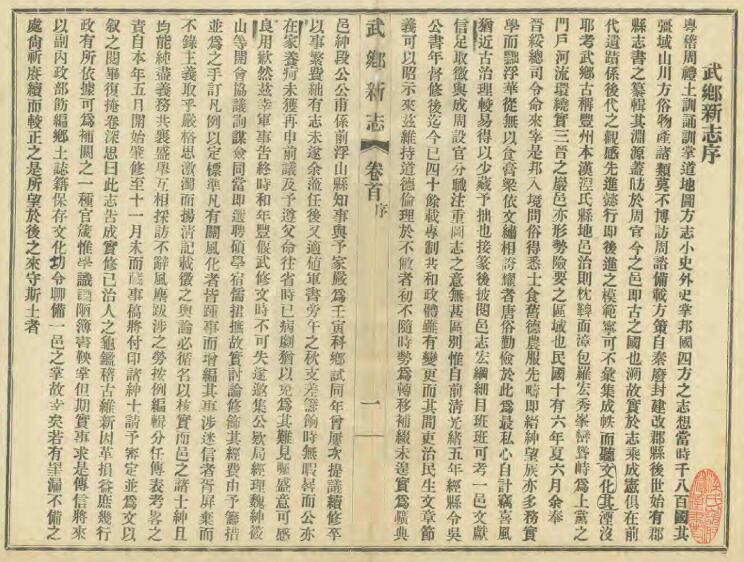 武鄉新志序
粵稽周禮土訓誦訓掌道地圖方志小史外史掌邦國四方之志想當時千八百國其
疆域山川方俗物產諸類莫不博訪周諮備載方策自秦廢封建改郡縣後世始有郡
縣志書之纂輯其淵源蓋昉於周官今之邑即古之國也溯故實於志乘成憲俱在前
代遺蹟係後代之觀感先進懿行即後進之模範寧可不彙集成帙而聽文化其湮沒
耶考武鄉古稱豐州本漢涅氏縣地邑治則枕鞞面漳包羅宏秀峯巒聳峙為上黨之
門戶河流環繞實三晉之巖邑亦形勢險要之區域也民國十有六年夏六月余奉
晉綏總司令命來宰是邦入境問俗得悉士食舊德農服先疇即縉紳望族亦多務實
學而黜浮華從無以食膏粱依文繡相誇耀者唐俗勤儉於此為最私心自計竊喜風
猶近古治理較易得以少藏予拙也接篆後披閱邑志宏綱細目班班可考一邑文獻
信足取徵與成周設官分職注重圖志之意無甚區別惟自前清光緒五年經縣令吳
公書年督修後迄今已四十餘載專制共和政體雖有變更而其間更治民生文章節
義可以昭示來茲維持道德倫理於不敝者初不隨時勢為轉移補綴未遑實為曠典
武鄉新志 卷首 序 一
邑紳段公公甫係前浮山縣知事與予家嚴為壬寅科鄉試同年曾屢次提議續修卒
以事繁費絀有志未遂余流任後又適值軍書旁午之秋支差籌餉時無暇晷而公亦
在家養疴未獲再申前議及予遵父命往省時已病劇猶以克為其難見囑盛意可感
良用歉然茲幸軍事告終時和年豐偃武修文時不可失遂邀集公欵局經理魏紳絞
山等開會協議詢謀僉同當即選聘碩學宿儒捃摭故實討論修飾其經費由予籌措
並為之手訂凡例以定標準凡有關風化者皆踵事而增編其事涉迷信者胥屏棄而
不錄主義取乎嚴格思激濁而揚清記載徵之輿論必循名以核實而邑之諸士紳且
均能純盡義務共襄盛舉互相採訪不辭風塵跋涉之勞按例編輯分任傳表考畧之
責自本年五月開始肇修至十一月未而蕆事稿將付印諸紳士請予審定並為文以
叙之閱畢復掩卷深思曰此志告成實修已治人之龜鑑稽古維新因革損益庶幾行
政有所依據可為補闕之一種官箴惟學識淺陋簿書鞅掌但期實事求是傳信將來
以副內政部飭編鄉土誌籍保存文化功令聊備一邑之掌故幸矣若有罣漏不備之
處尚祈賡續而較正之是所望於後之來守斯土者